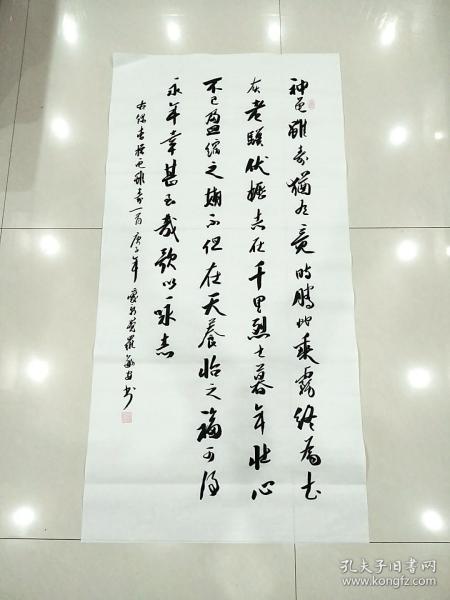 神龟雖寿猶有竟時騰蛇乘霧終為土
灰老驥伏櫪志在千里烈士暮年壮心
不已盈縮之期不但在天養怡之福可得
永年幸甚至哉歌以咏志
曹操龟雖寿一首 庚子年 羅 书
孔夫子旧书网
www.kongfz.com